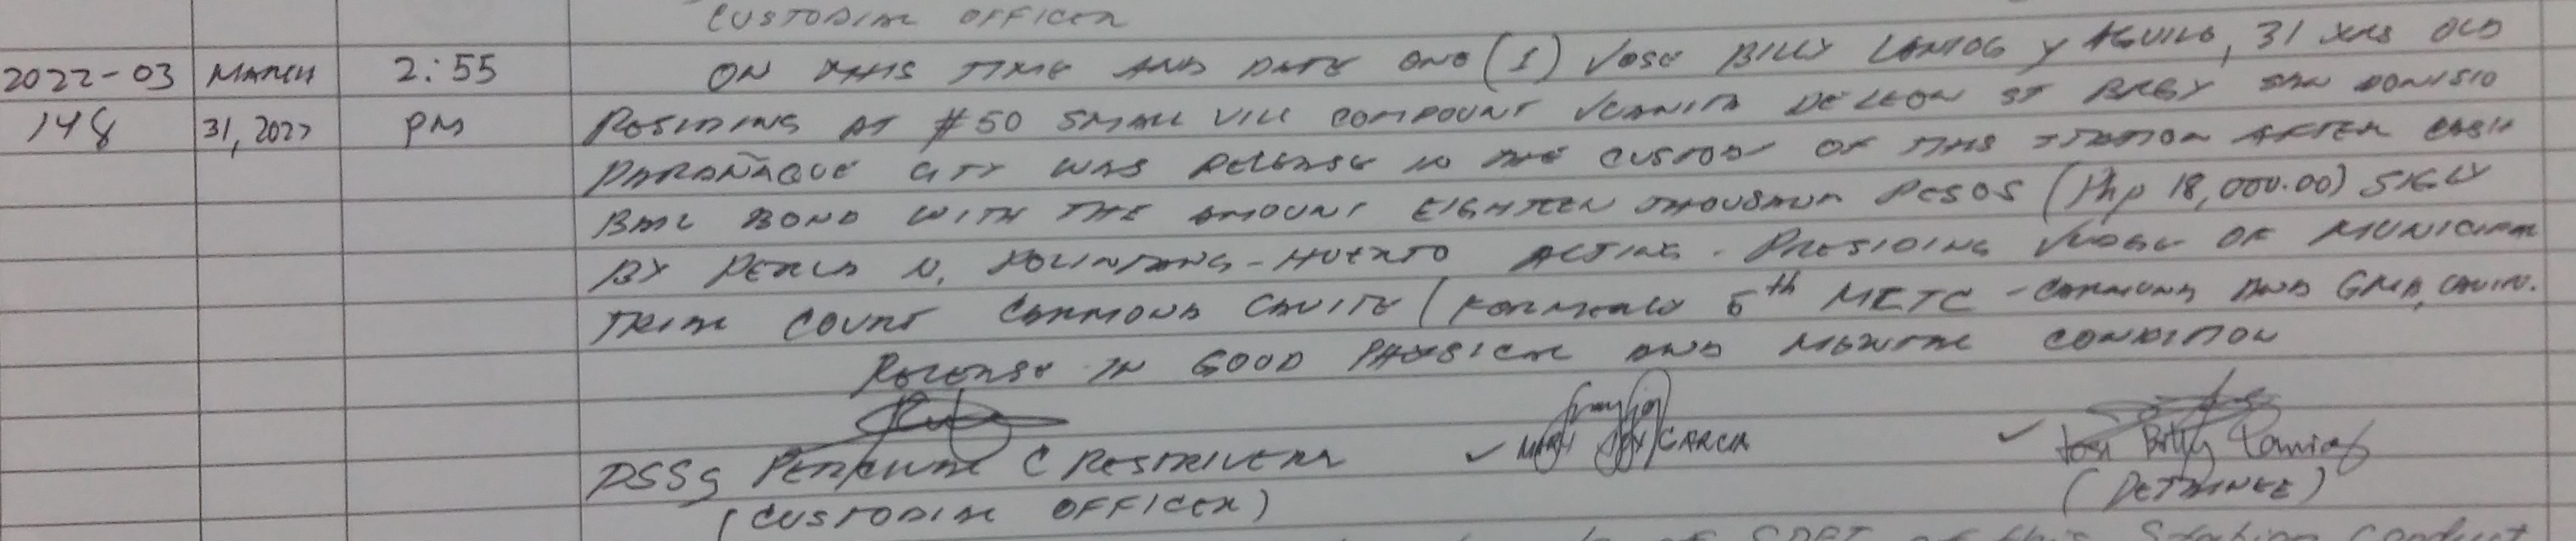 CUSTODIAL OFFICER
2022-03 MARCH 2:55 ON THIS TIME AND DATE ONE (1) JOSE BILLY LAMIOG Y AGUILO, 31 YRS OLD
148 31, 2022 PM RESIDING AT #50 SMALL VILL COMPOUNT JUANITA DE LEON ST BRGY SAN DONISIO
PARAÑAQUE CITY WAS RELEASE IN THE CUSTODY OF THIS STATION AFTER CASH
BAIL BOND WITH THE AMOUNT EIGHTEEN THOUSAND PESOS (Php 18,000.00) SIGLY
BY PERLA N. ACTING - PRESIDING JUDGE OF MUNICIPAL
TRIAL COURT CARMONA CAVITE (FORMERLY 5th METC - CARMONA AND GMA, CAVITE.
RELEASE IN GOOD PHYSICAL AND MENTAL CONDITION
PSSg C RESTRIVERA MARY JOY GARCIA Jose Billy Lamiog
(CUSTODIAL OFFICER) (DETAINEE)
of this Station conduct